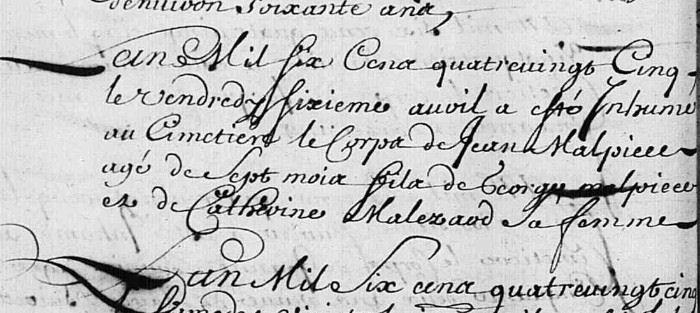 denuiron soixante ans,
Lan Mil six Cens quatreuingt Cinq
le vendredy sixieme auril a esté Inhumé
au Cimetiere le Corps de Jean Malpiece
agé de Sept mois fils de George malpiece
et de Catherine Malezard sa femme
Lan Mil Six cens quatreuingt cinq